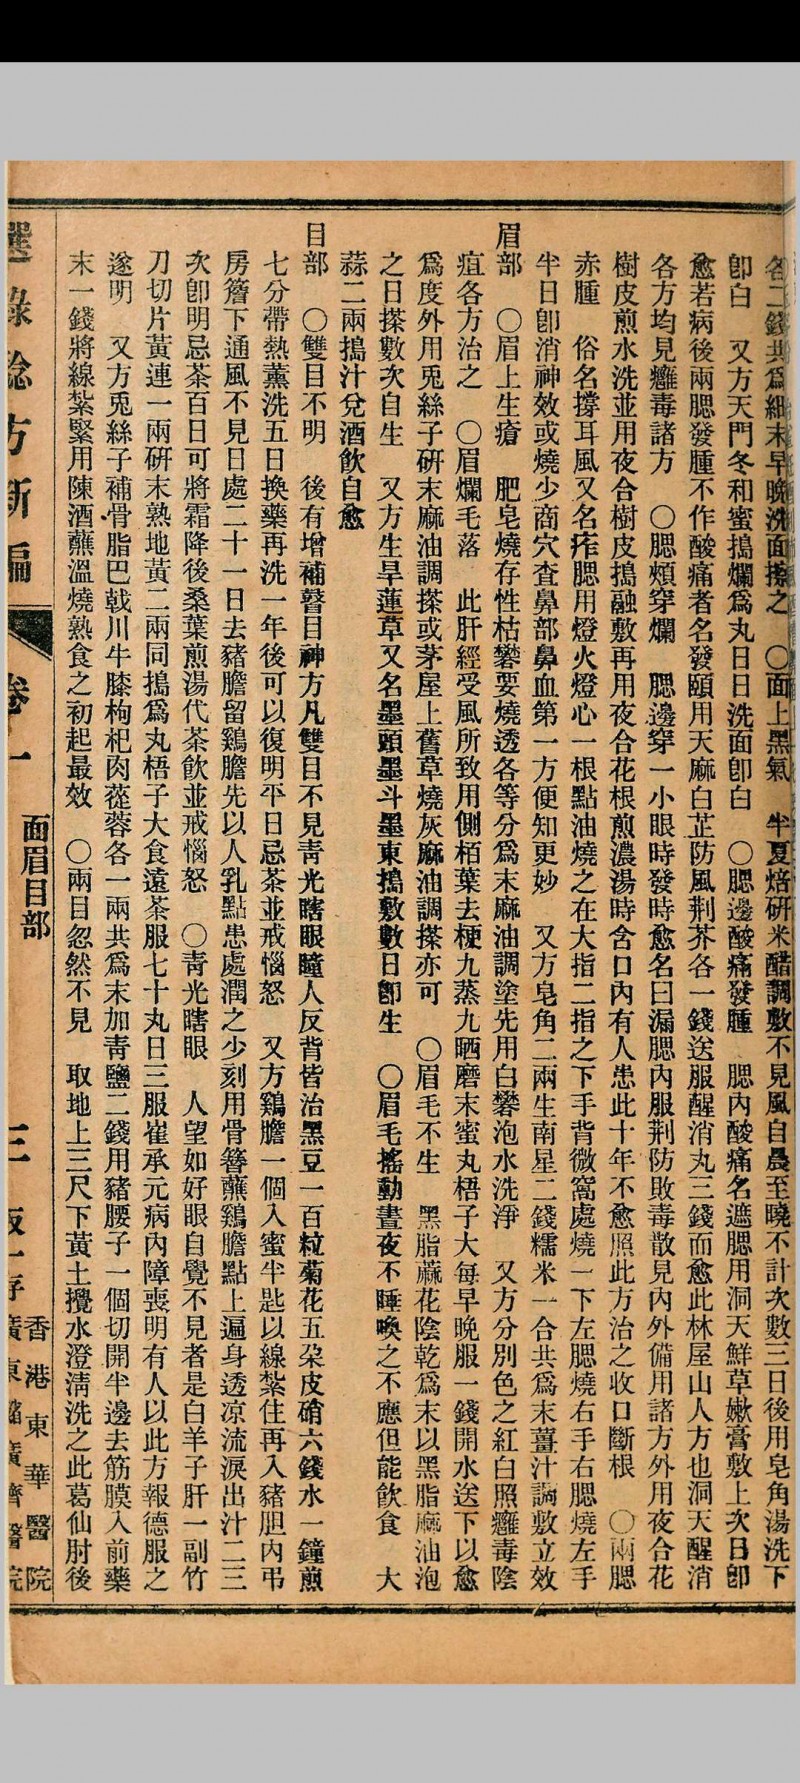 各二錢共爲細末早晚洗面擦之　〇面上黑氣　半夏焙研米醋調敷不見風自晨至曉不計次數三日後用皂角湯洗下
卽白　又方天門冬和蜜搗爛爲丸日日洗面卽白　〇腮邊酸痛發腫　腮內酸痛名遮腮用洞天鮮草嫩膏敷上次日卽
愈若病後兩腮發腫不作酸痛者名發頤用天麻白芷防風荆芥各一錢送服醒消丸三錢而愈此林屋山人方也洞天醒消
各方均見癰毒諸方　〇腮頰穿爛　腮邊穿一小眼時發時愈名曰漏腮內服荆防敗毒散見內外備用諸方外用夜合花
樹皮煎水洗並用夜合樹皮搗融敷再用夜合花根煎濃湯時含口內有人患此十年不愈照此方治之收口斷根　〇兩腮
赤腫　俗名撐耳風又名痄腮用燈火燈心一根點油燒之在大指二指之下手背微窩處燒一下左腮燒右手右腮燒左手
半日卽消神效或燒少商穴查鼻部鼻血第一方便知更妙　又方皂角二兩生南星二錢糯米一合共爲末薑汁調敷立效
眉部　〇眉上生瘡　肥皂燒存性枯礬要燒透各等分爲末麻油調塗先用白礬泡水洗淨　又方分別色之紅白照癰毒陰
疽各方治之　〇眉爛毛落　此肝經受風所致用側栢葉去梗九蒸九晒磨末蜜丸梧子大每早晚服一錢開水送下以愈
爲度外用兎絲子研末麻油調搽或茅屋上舊草燒灰麻油調搽亦可　〇眉毛不生　黑脂蔴花陰乾爲末以黑脂麻油泡
之日搽數次自生　又方生旱蓮草又名墨頭墨斗墨東搗敷數日卽生　〇眉毛搖動晝夜不睡喚之不應但能飮食　大
蒜二兩搗汁兌酒飮自愈
目部　〇雙目不明　後有增補瞽目神方凡雙目不見靑光瞎眼瞳人反背皆治黑豆一百粒菊花五朶皮硝六錢水一鐘煎
七分帶熱薰洗五日換藥再洗一年後可以復明平日忌茶並戒惱怒　又方鷄膽一個入蜜半匙以線紮住再入豬胆內弔
房簷下通風不見日處二十一日去豬膽留鷄膽先以人乳點患處潤之少刻用骨簪蘸鷄膽點上遍身透凉流淚出汁二三
次卽明忌茶百日可將霜降後桑葉煎湯代茶飮並戒惱怒　〇靑光瞎眼　人望如好眼自覺不見者是白羊子肝一副竹
刀切片黃連一兩研末熟地黃二兩同搗爲丸梧子大食遠茶服七十丸日三服崔承元病內障喪明有人以此方報德服之
遂明　又方兎絲子補骨脂巴戟川牛膝枸杞肉蓯蓉各一兩共爲末加靑鹽二錢用豬腰子一個切開半邊去筋膜入前藥
末一錢將線紮緊用陳酒蘸溫燒熟食之初起最效　〇兩目忽然不見　取地上三尺下黃土攪水澄淸洗之此葛仙肘後
選錄騐方新編　卷一　面眉目部　三　版一存　香港東華醫院　廣東　廣濟醫院